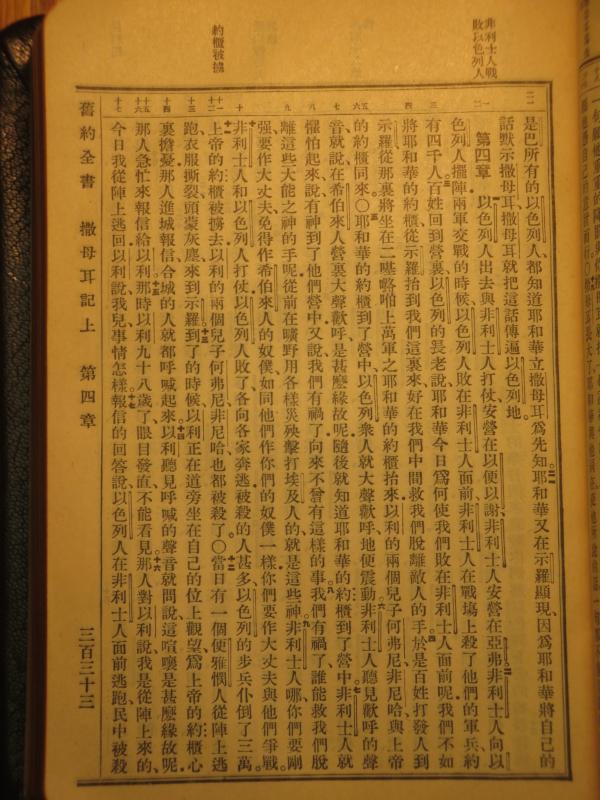 非利士人戰
敗以色列人
約櫃被擄
是巴所有的以色列人都知道耶和華立撒母耳爲先知耶和華又在示羅顯現因爲耶和華將自己的
話默示撒母耳撒母耳就把這話傳遍以色列地
第四章 以色列人出去與非利士人打仗安營在以便以謝非利士人安營在亞弗非利士人向以
色列人擺陣兩軍交戰的時候以色列人敗在非利士人面前非利士人在戰塲上殺了他們的軍兵約
有四千人百姓回到營裏以色列的長老說耶和華今日爲何使我們敗在非利士人面前呢我們不如
將耶和華的約櫃從示羅抬到我們這裏來好在我們中間救我們脫離敵人的手於是百姓打發人到
示羅從那裏將坐在二𠼻㗣啪上萬軍之耶和華的約櫃抬來以利的兩個兒子何弗尼非尼哈與上帝
的約櫃同來〇耶和華的約櫃到了營中以色列衆人就大聲歡呼地便震動非利士人聽見歡呼的聲
音就說在希伯來人營裏大聲歡呼是甚麽緣故呢隨後就知道耶和華的約櫃到了營中非利士人就
懼怕起來說有神到了他們營中又說我們有禍了向來不曾有這樣的事我們有禍了誰能救我們脫
離這些大能之神的手呢從前在曠野用各樣災殃擊打埃及人的就是這些神非利士人哪你們要剛
強要作大丈夫免得作希伯來人的奴僕如同他們作你們的奴僕一樣你們要作大丈夫與他們爭戰
非利士人和以色列人打仗以色列人敗了各向各家奔逃被殺的人甚多以色列的步兵仆倒了三萬
上帝的約櫃被擄去以利的兩個兒子何弗尼非尼哈也都被殺了〇當日有一個便雅憫人從陣上逃
跑衣服撕裂頭蒙灰塵來到示羅到了的時候以利正在道旁坐在自己的位上觀望爲上帝的約櫃心
裏擔憂那人進城報信合城的人就都呼喊起來以利聽見呼喊的聲音就問說這喧嚷是甚麽緣故呢
那人急忙來報信給以利那時以利九十八歲了眼目發直不能看見那人對以利說我是從陣上來的
今日我從陣上逃回以利說我兒事情怎樣報信的回答說以色列人在非利士人面前逃跑民中被殺
舊約全書 撒母耳記上 第四章 三百三十三